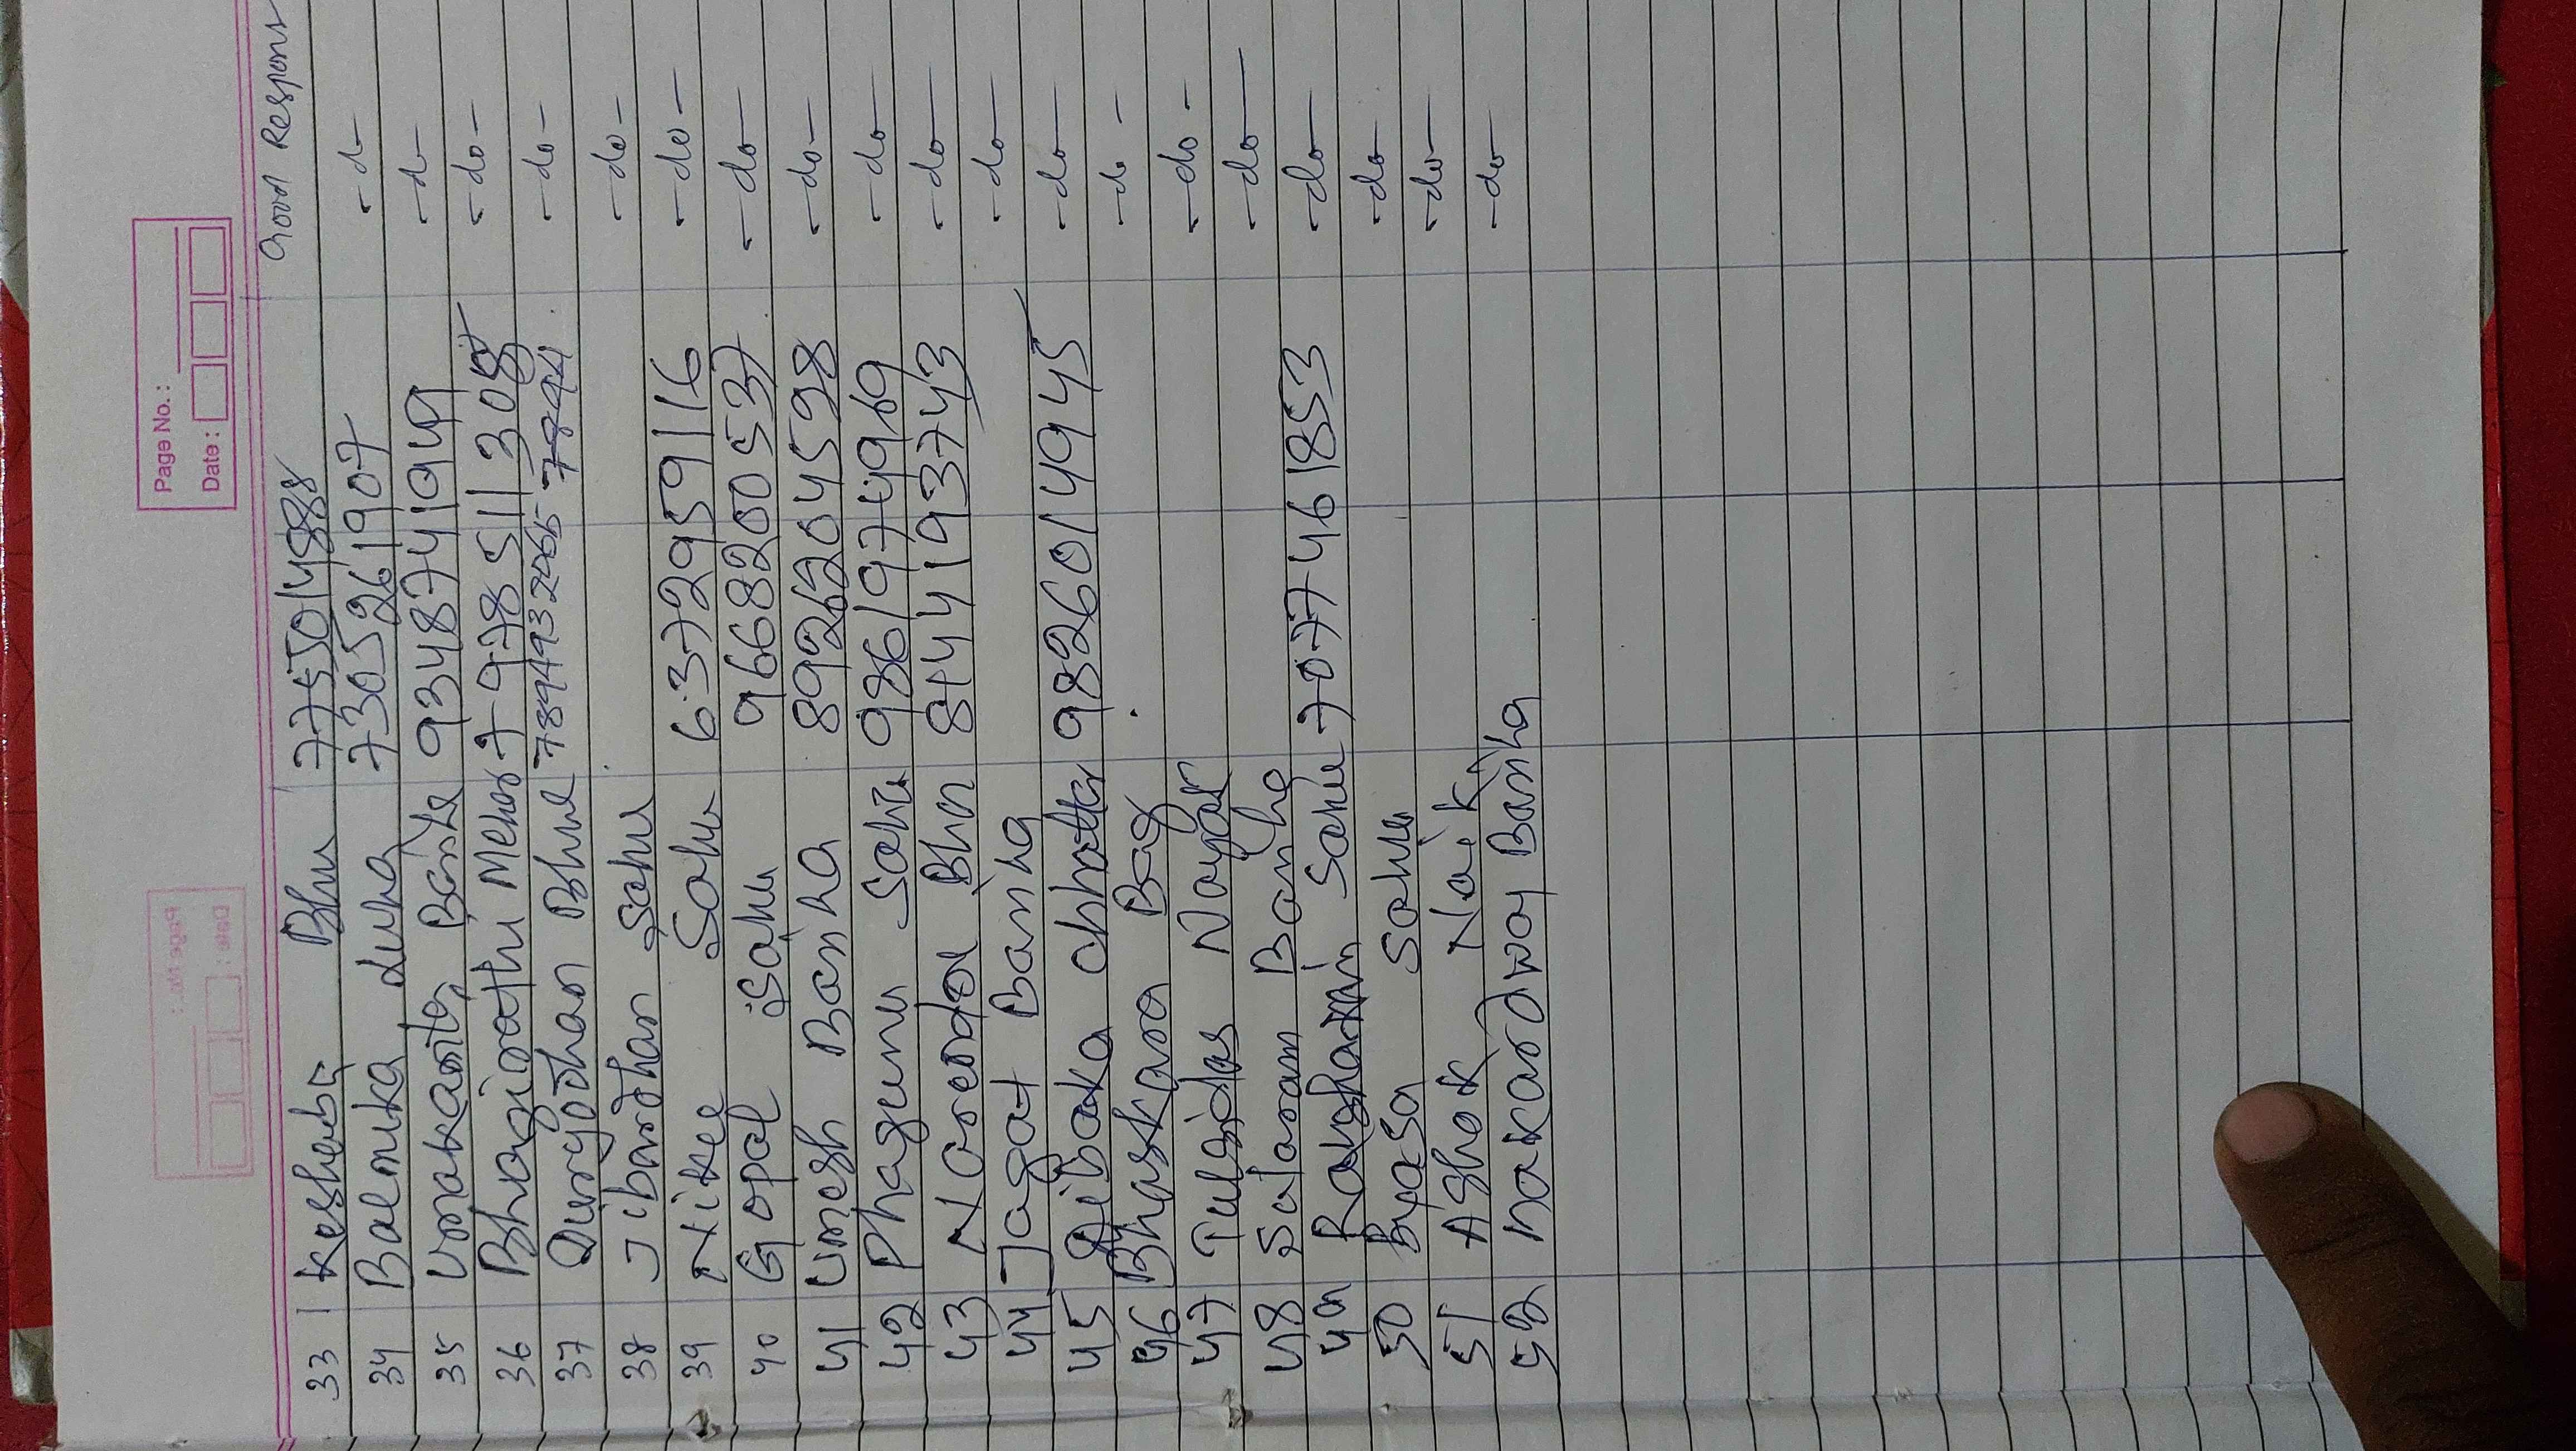 Page No.:
Date:
33 Keshaba Bhu 775014888 Good Respons
34 Balmika duha 7305261907 -do-
35 Umakanta Banha 9348741949 -do-
36 Bhagirathi Meher 7978511308 -do-
37 Duryodhan Bhue 7894932065 -do-
38 Jibardhan Sahu -do-
39 Nitee Sahu 6372959116 -do-
40 Gopal Sahu 9668200537 -do-
41 Umesh Banha 8926204598 -do-
42 Phagunu Sahu 9861974969 -do-
43 Narendra Bhoi 8144193743 -do-
44 Jagat Banha -do-
45 Dibaka chhatta 9826014945 -do-
46 Bhaskara Bag -do-
47 Tulsidas Nayak -do-
48 Sataram Banha -do-
49 Sahu 7077461853 -do-
50 Byasa Sahu -do-
51 Ashok Naik -do-
52 Makardwaj Banha -do-